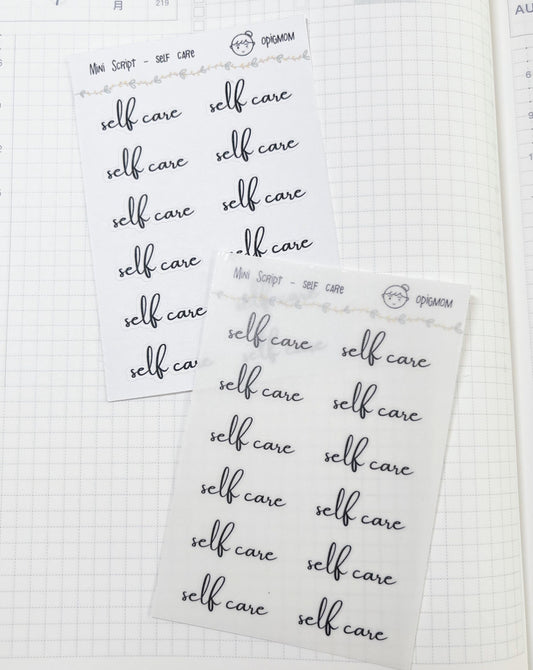 月
219
AU
6
Mini Script - self care
opigmom
self care self care
self care self care
self care self care
self care self care
self care
self ca
Mini Script - self care
opigmom
self care self care
self care self care
self care self care
self care self care
self care self care
self care self care